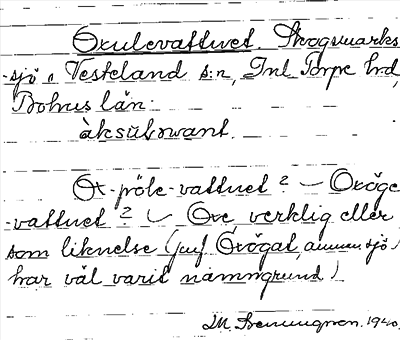 Oxulevattnet. Skogsmarks-
-sjö i Vesteland s:n, Inl Torpe hrd,
Bohus län.
àksŭlɜwant.
Ox-pöle-vattnet? – Oxöge
-vattnet? – Oxe verklig eller
som liknelse (jmf Oxögat, annan sjö
har väl varit namngrund)
1940.